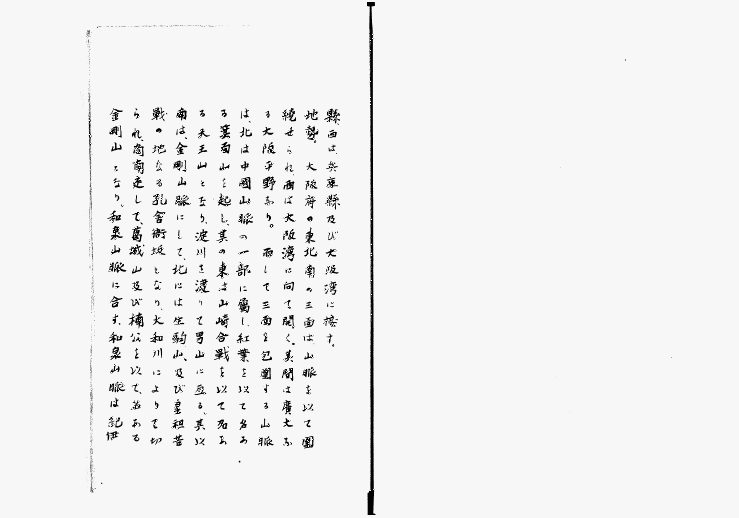 縣、西は、兵庫縣及び大阪灣に接す。
地勢。　大阪府の東北南の三面は山脈を以て圍
繞せられ西は大阪灣に向て開く。其間は廣大な
る大阪平野あり。　而して三面を包圍する山脈
は、北は中國山脈の一部に屬し、紅葉を以て名あ
る箕面山を起し、其の東は山崎合戰を以て名あ
る天王山となり、淀川を渡りて男山に亙る、其以
南は、金剛山脈にして、北には生駒山、及び皇祖苦
戰の地なる孔舍衙坂となり、大和川によりて切
られ、尚南走して、葛城山及び楠公を以て、名ある
金剛山となり、和泉山脈に合す、和泉山脈は紀伊